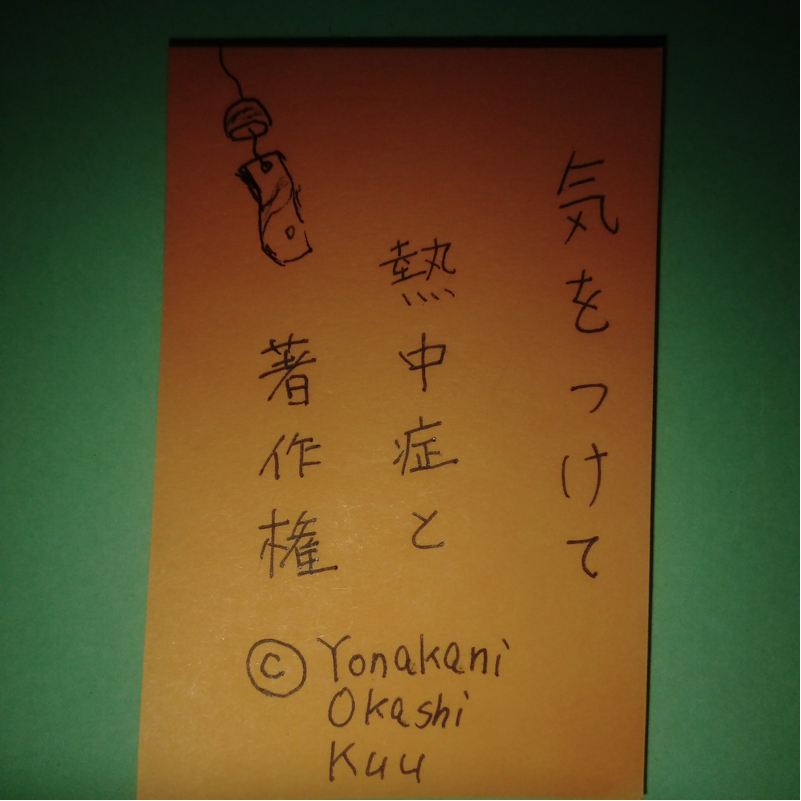 気をつけて
熱中症と
著作権
© Yonakani
Okashi
Kuu